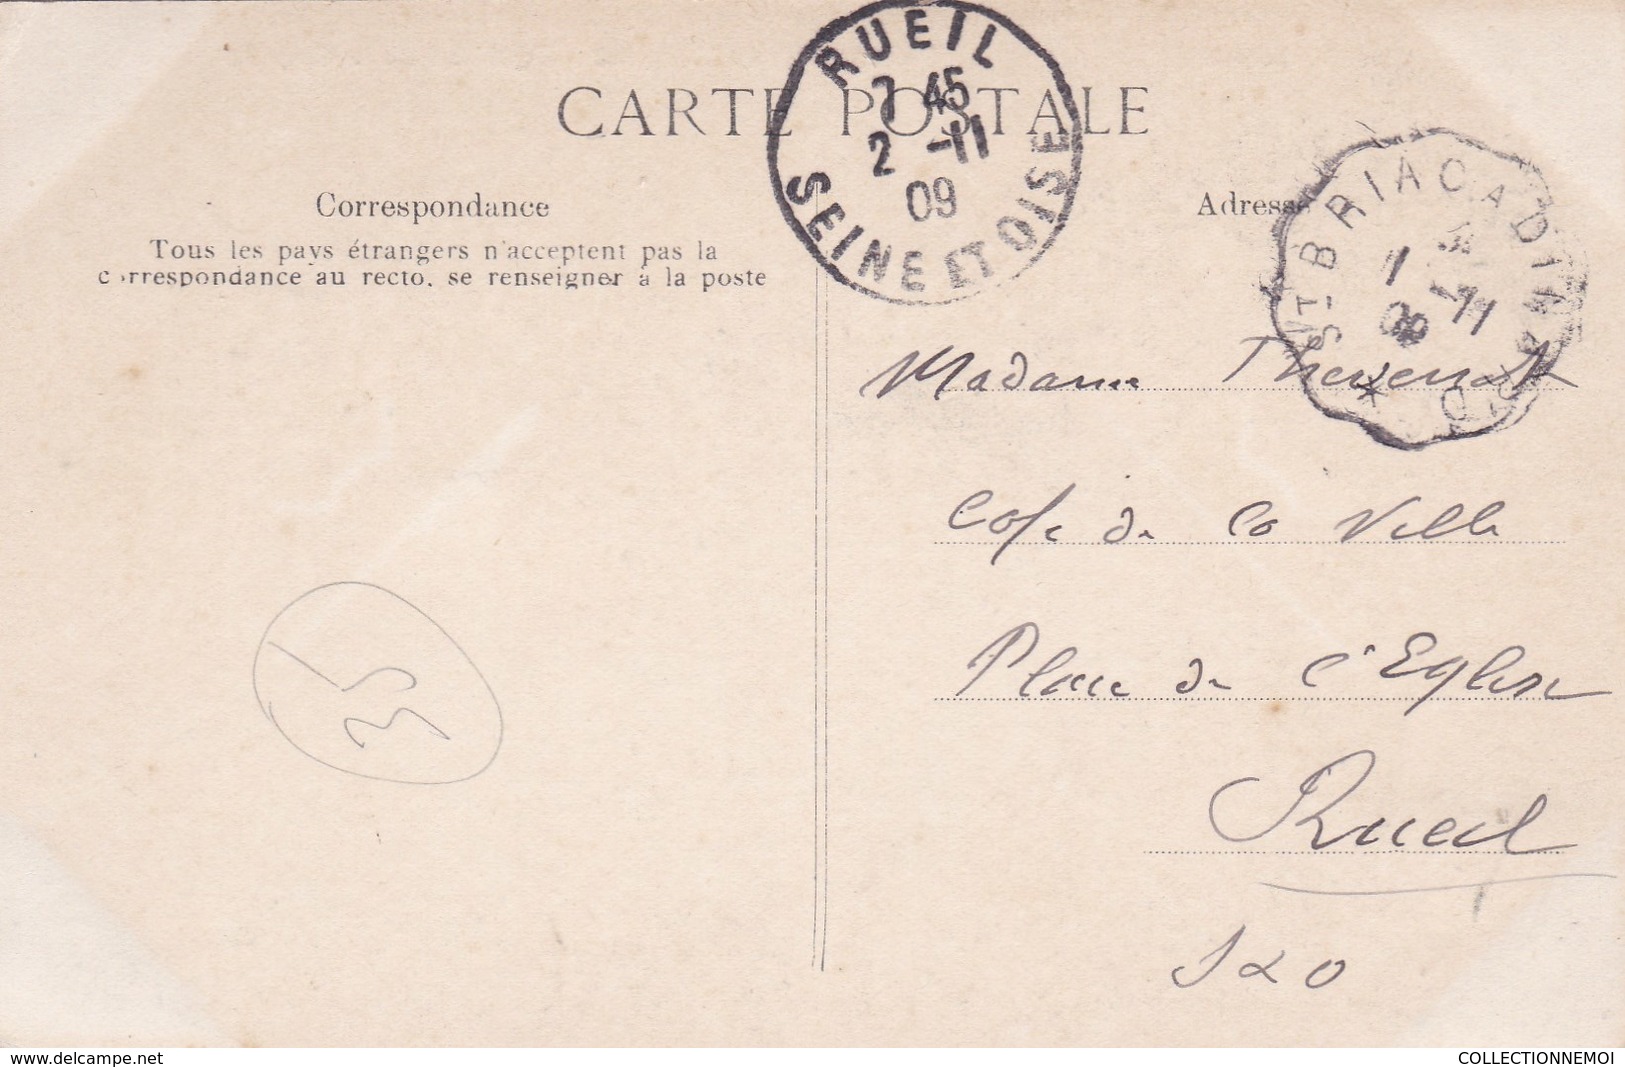 CARTE POSTALE
RUEIL
7 45
2 -11
09
SEINE ET OISE
Correspondance
Tous les pays étrangers n'acceptent pas la
correspondance au recto, se renseigner à la poste
Adresse
ST-BRIAC A DINARD
1 -11
Madame Thevenot
Cafe de la Ville
Place de l'Eglise
Rueil
S & O
35
www.delcampe.net
COLLECTIONNEMOI